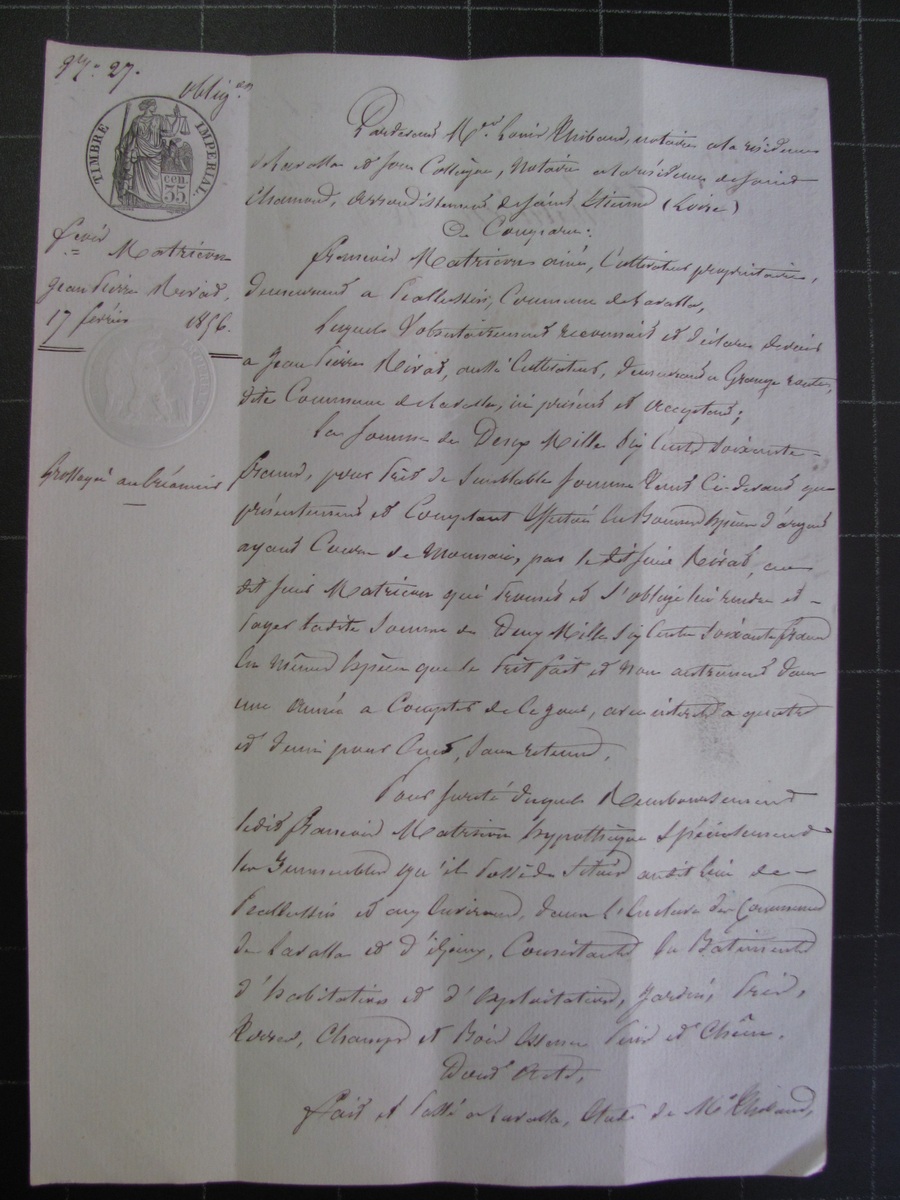 9bre 27.
oblig.on
TIMBRE IMPERIAL
35 cen.
Matricon
Jean Pierre Rivat,
17 février 1856.
Grossoyée au créancier
Pardevant Me Louis Thibaud, notaire à la résidence
de Lavalla et son Collègue, Notaire à la résidence de Saint
Chamond, arrondissement de Saint Etienne (Loire)
A Comparu:
François Matricon ainé, Cultivateur propriétaire,
demeurant à Commune de Lavalla,
Lequel Volontairement reconnait et déclare devoir
à Jean Pierre Rivat, aussi Cultivateur, demeurant à Grange
dite Commune de Lavalla, ici présent et acceptant;
La somme de Deux Mille Six Cents soixante
francs, pour Prêt de semblable somme
présentement et Comptant effectué en Bonnes Espèces d'argent
ayant Cours de Monnaie, par le dit sieur Rivat, au
dit sieur Matricon qui promet et s'oblige lui rendre et
payer ladite somme de Deux Mille Six Cents soixante francs
en mêmes Espèces que le Prêt fait et non autrement dans
une année à Compter de Ce jour, avec intérêt à quatre
et demi pour Cent, sans retenue,
Pour sureté duquel Remboursement
ledit François Matricon hypothèque Spécialement
les Immeubles qu'il possède Situés audit lieu de
et aux Environs, dans l'Enclave des Communes
de Lavalla et d'izieux, Consistants en Batiments
d'habitation et d'Exploitation, jardin, Prés,
Terres, Champs et Bois Essence Pins et Chêne.
Dont Acte,
Fait et Passé à Lavalla, Etude de Me Thibaud,